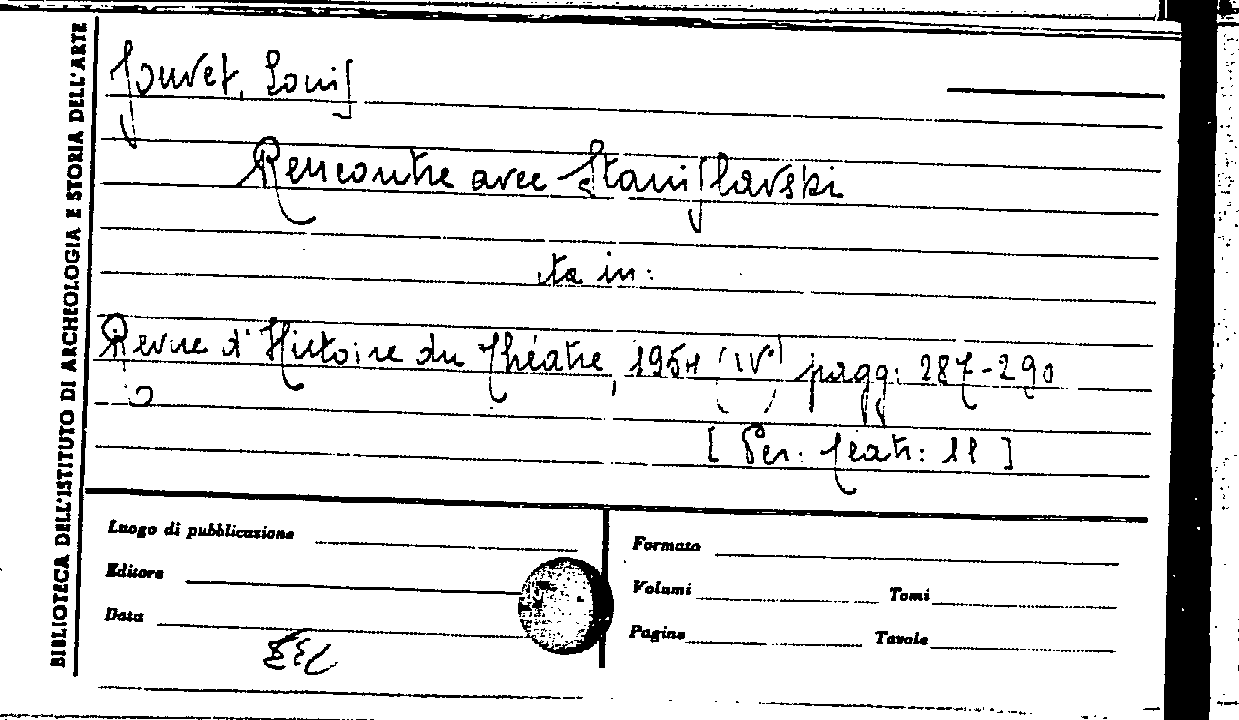 BIBLIOTECA DELL'ISTITUTO DI ARCHEOLOGIA E STORIA DELL'ARTE
Jouvet, Louis
Rencontre avec Stanislavski
in:
Revue d'Histoire du Théatre, 1954 (IV) pagg: 287-290
[Per. Teatr: 11]
Luogo di pubblicazione
Editore
Data
Formato
Volumi Tomi
Pagine Tavole